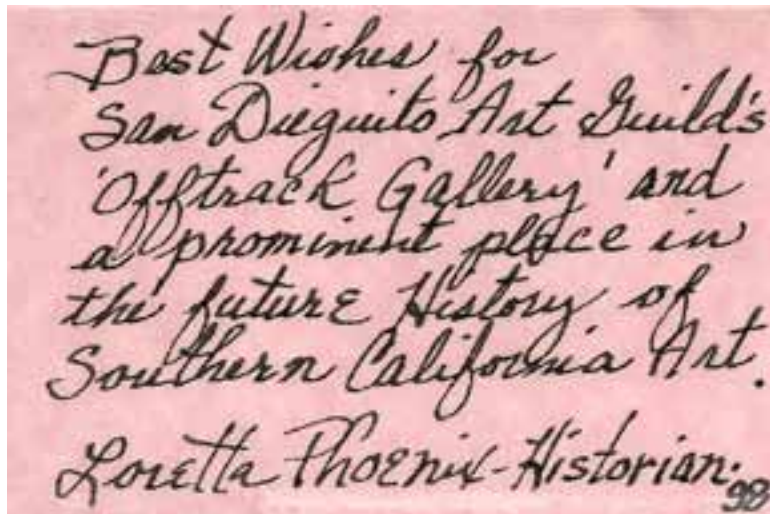 Best Wishes for
San Dieguito Art Guild's
'Offtrack Gallery' and
a prominent place in
the future History of
Southern California Art.
Loretta Phoenix-Historian.
98